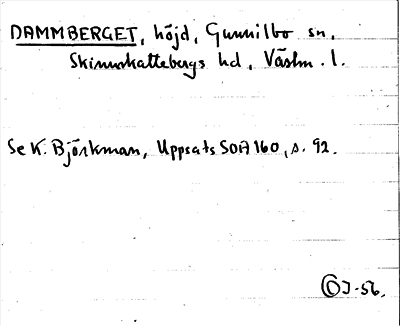 DAMMBERGET, höjd, Gunnilbo sn,
Skinnskattebergs hd, Västm. l.
Se K. Björkman, Uppsats SOA 160, s. 92.
ÖJ-56.